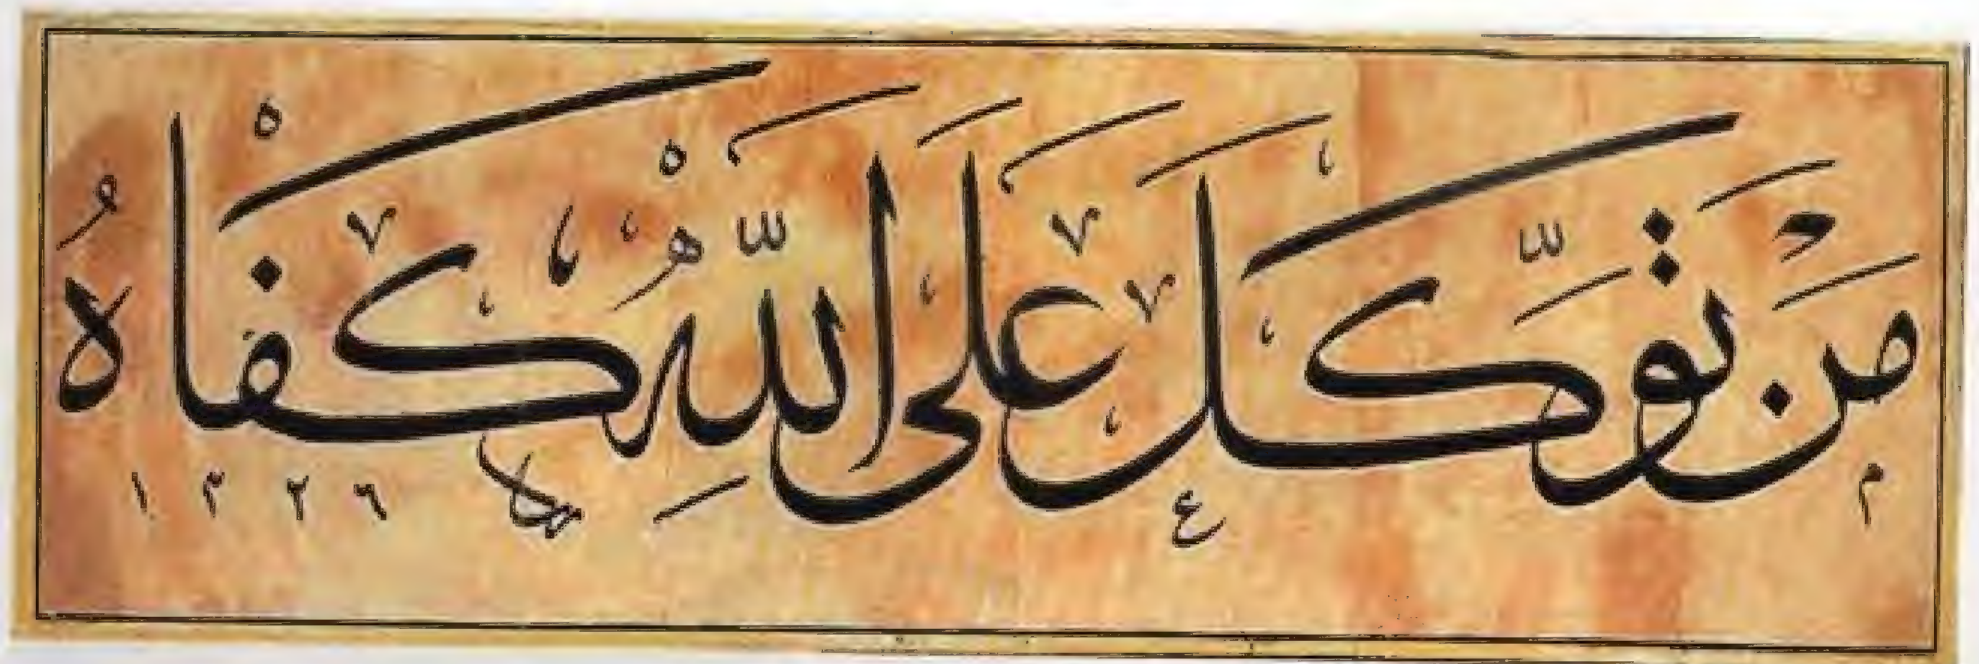 مَنْ تَوَكَّلَ عَلَى اللَّهِ كَفَاهُ
١٣٢٦